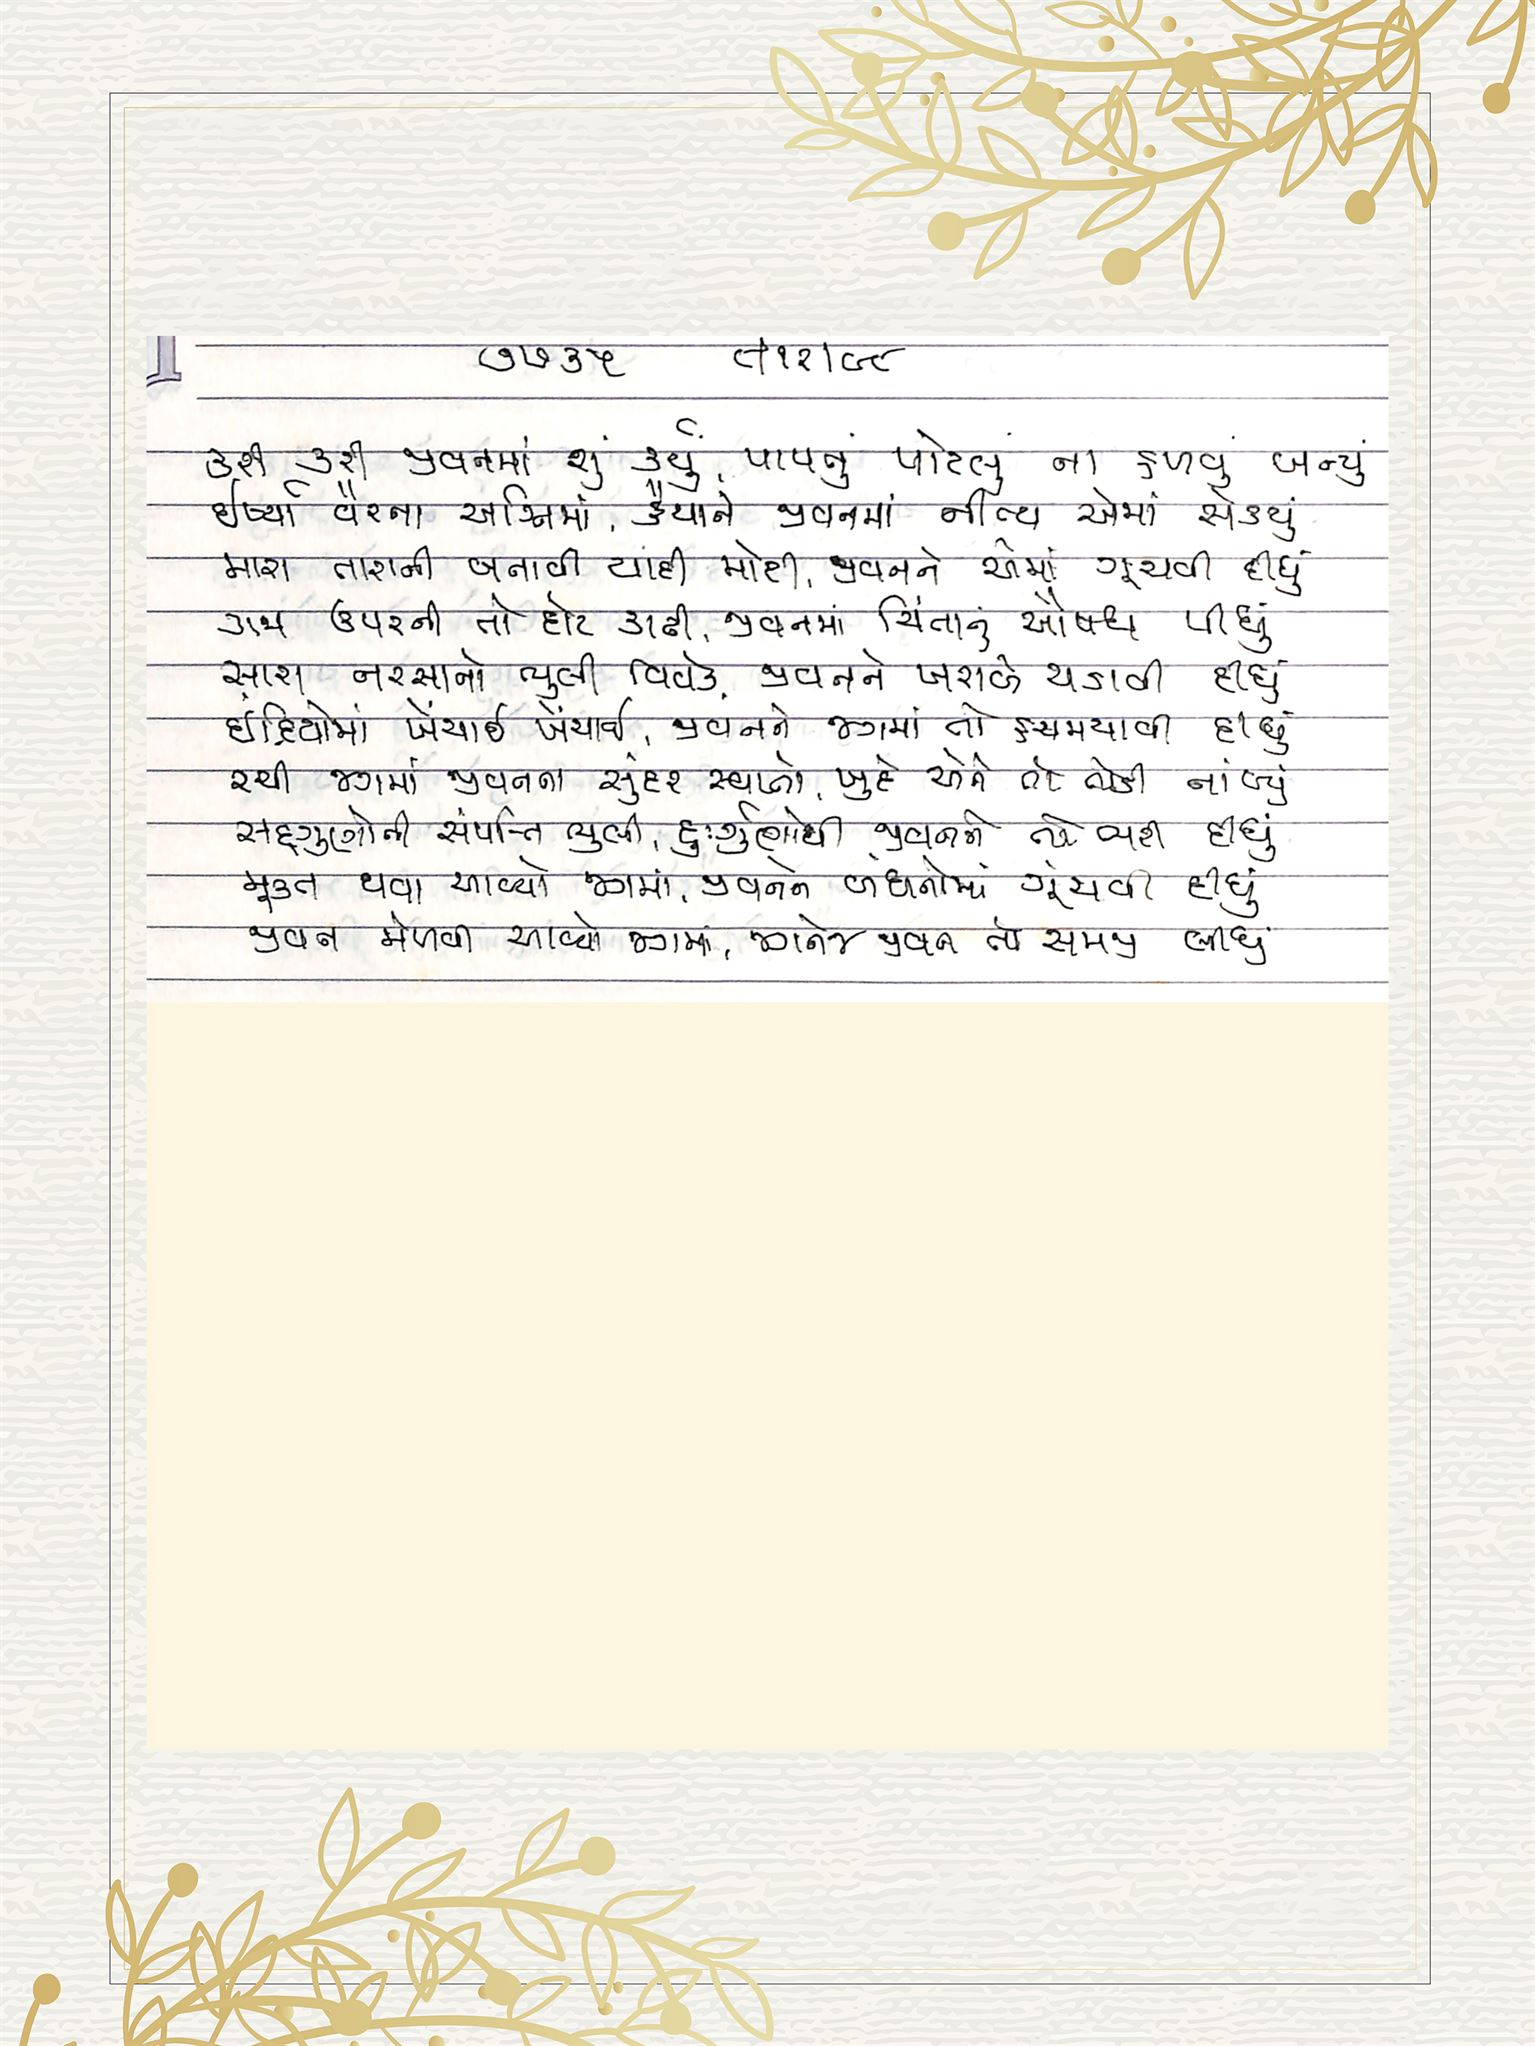 ૭૭૩૫ નારાજ
કરી કરી જીવનમાં શું કર્યું, પાપનું પોટલું ના હળવું બન્યું
ઈર્ષ્યા વૈરના અગ્નિમાં, હૈયાને જીવનમાં નીત્ય એમાં સેકયું
મારા તારાની બનાવી યાદી મોટી, જીવનને એમાં ગૂંચવી દીધું
ગજા ઉપરની તો દોટ કાઢી, જીવનમાં ચિંતાનું ઔષધ પીધું
સારા નરસાનો ભુલી વિવેક, જીવનને ખરાબે ચડાવી દીધું
ઈંદ્રિયોમાં ખેંચાઈ ખેંચાઈ, જીવનને જગમાં તો હચમચાવી દીધું
રચી જગમાં જીવનના સુંદર સ્વપ્નો, ખુદે એને તો તોડી નાંખ્યું
સદ્દગુણોની સંપત્તિ ભુલી, દુઃર્ગુણોથી જીવનને તો ભરી દીધું
મુક્ત થવા આવ્યો જગમાં, જીવનને બંધનોમાં ગૂંચવી દીધું
જીવન મેળવી આવ્યો જગમાં, જગનેજ જીવન તો સમજી લીધું